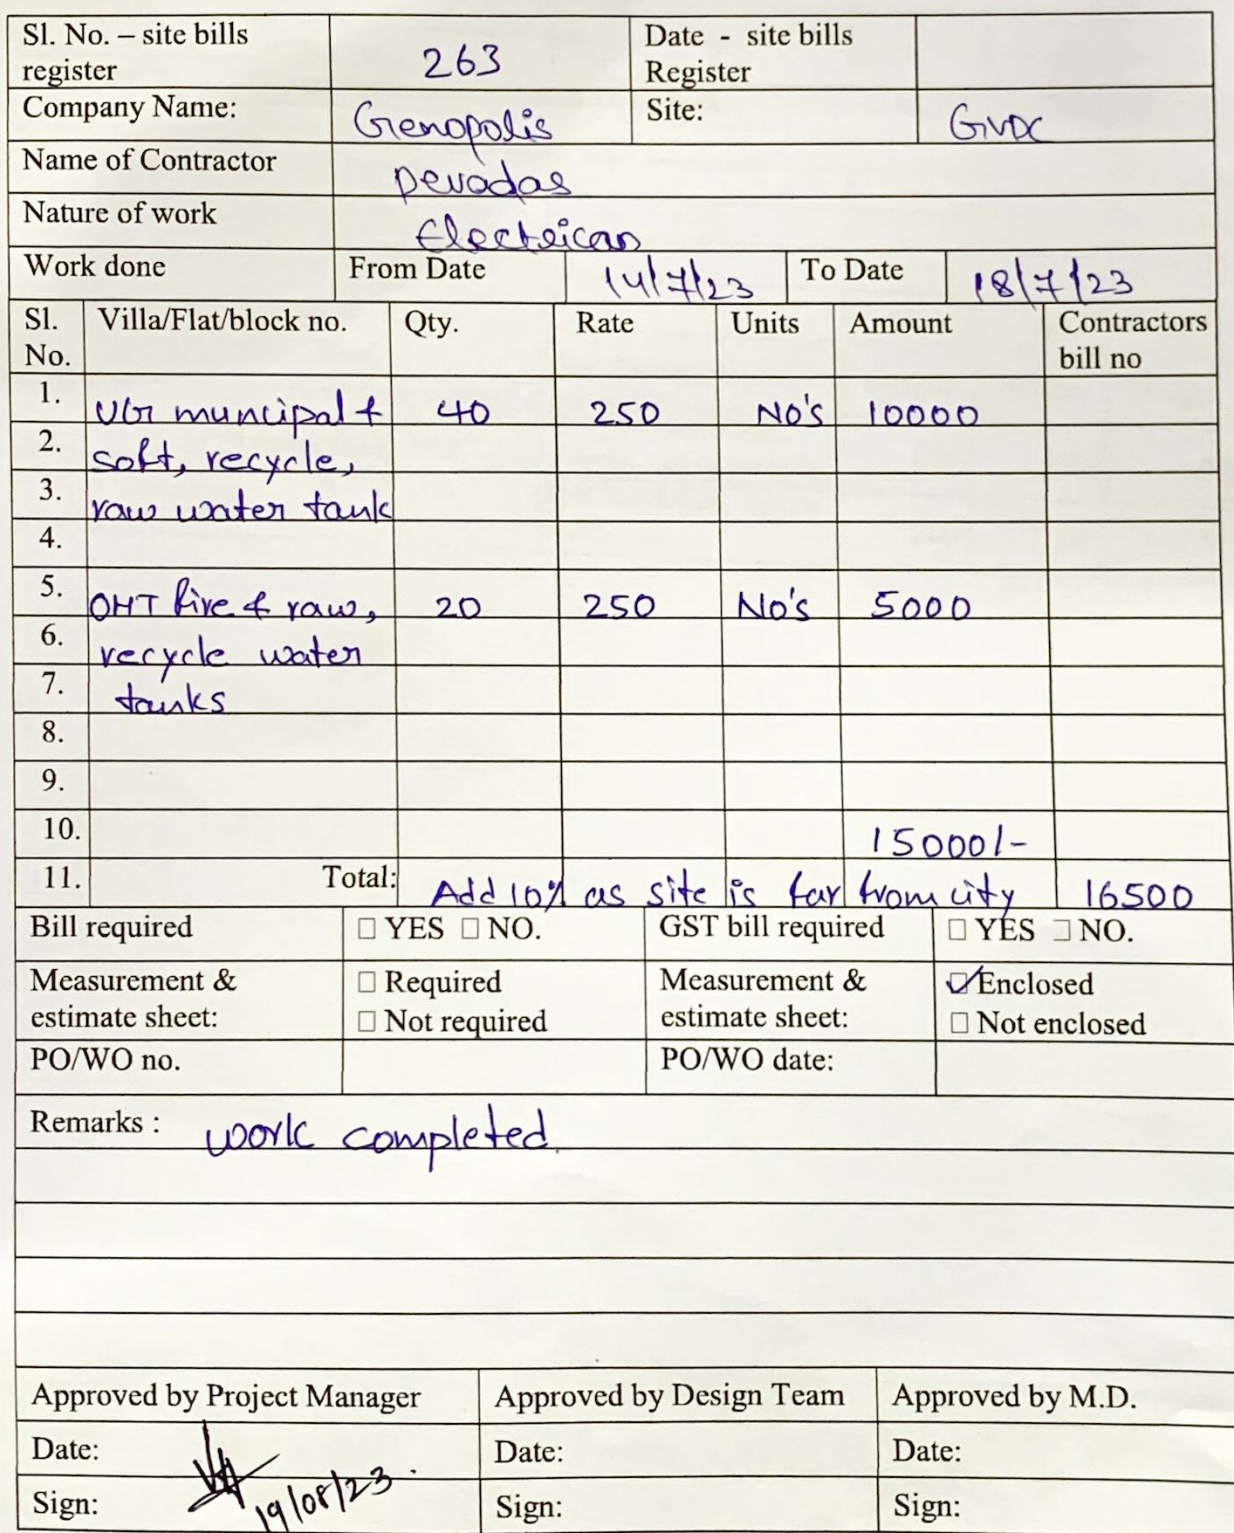 Sl. No. – site bills register 263 Date - site bills Register
Company Name: Genopolis Site: GVDC
Name of Contractor Devadas
Nature of work Electrican
Work done From Date 14/7/23 To Date 18/7/23
Sl. No. Villa/Flat/block no. Qty. Rate Units Amount Contractors bill no
1. UGr muncipal & 40 250 NO'S 10000
2. soft, recycle,
3. raw water tank
4.
5. OHT fire & raw, 20 250 No's 5000
6. recycle water
7. tanks
8.
9.
10. 15000/-
11. Total: Add 10% as site is far from city 16500
Bill required □ YES □ NO. GST bill required □ YES □ NO.
Measurement & estimate sheet: □ Required □ Not required Measurement & estimate sheet: ☑ Enclosed □ Not enclosed
PO/WO no. PO/WO date:
Remarks : work completed.
Approved by Project Manager Approved by Design Team Approved by M.D.
Date: Date: Date:
Sign: 19/08/23 Sign: Sign: